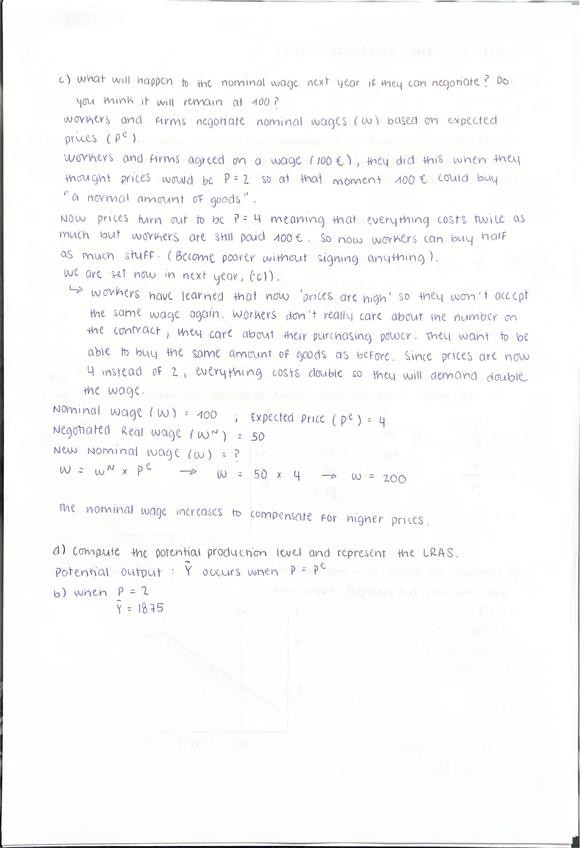 c) what will happen to the nominal wage next year if they can negotiate? Do
you think it will remain at 100?
workers and firms negotiate nominal wages (W) based on expected
prices (Pe).
workers and firms agreed on a wage (100 €), they did this when they
thought prices would be P = 2 so at that moment 100 € could buy
"a normal amount of goods".
Now prices turn out to be P = 4 meaning that everything costs twice as
much but workers are still paid 100 €. So now workers can buy half
as much stuff. (Become poorer without signing anything).
we are set now in next year, (·c)).
↳ workers have learned that now 'prices are high' so they won't accept
the same wage again. workers don't really care about the number on
the contract, they care about their purchasing power. They want to be
able to buy the same amount of goods as before. Since prices are now
4 instead of 2, everything costs double so they will demand double
the wage.
Nominal wage (W) = 100 ; Expected Price (Pe) = 4
Negotiated Real wage (wN) = 50
New Nominal wage (W) = ?
W = wN x Pe → W = 50 x 4 → W = 200
The nominal wage increases to compensate for higher prices.
d) compute the potential production level and represent the LRAS.
Potential Output : Ȳ occurs when P = Pe
b) when P = 2
Ȳ = 1875